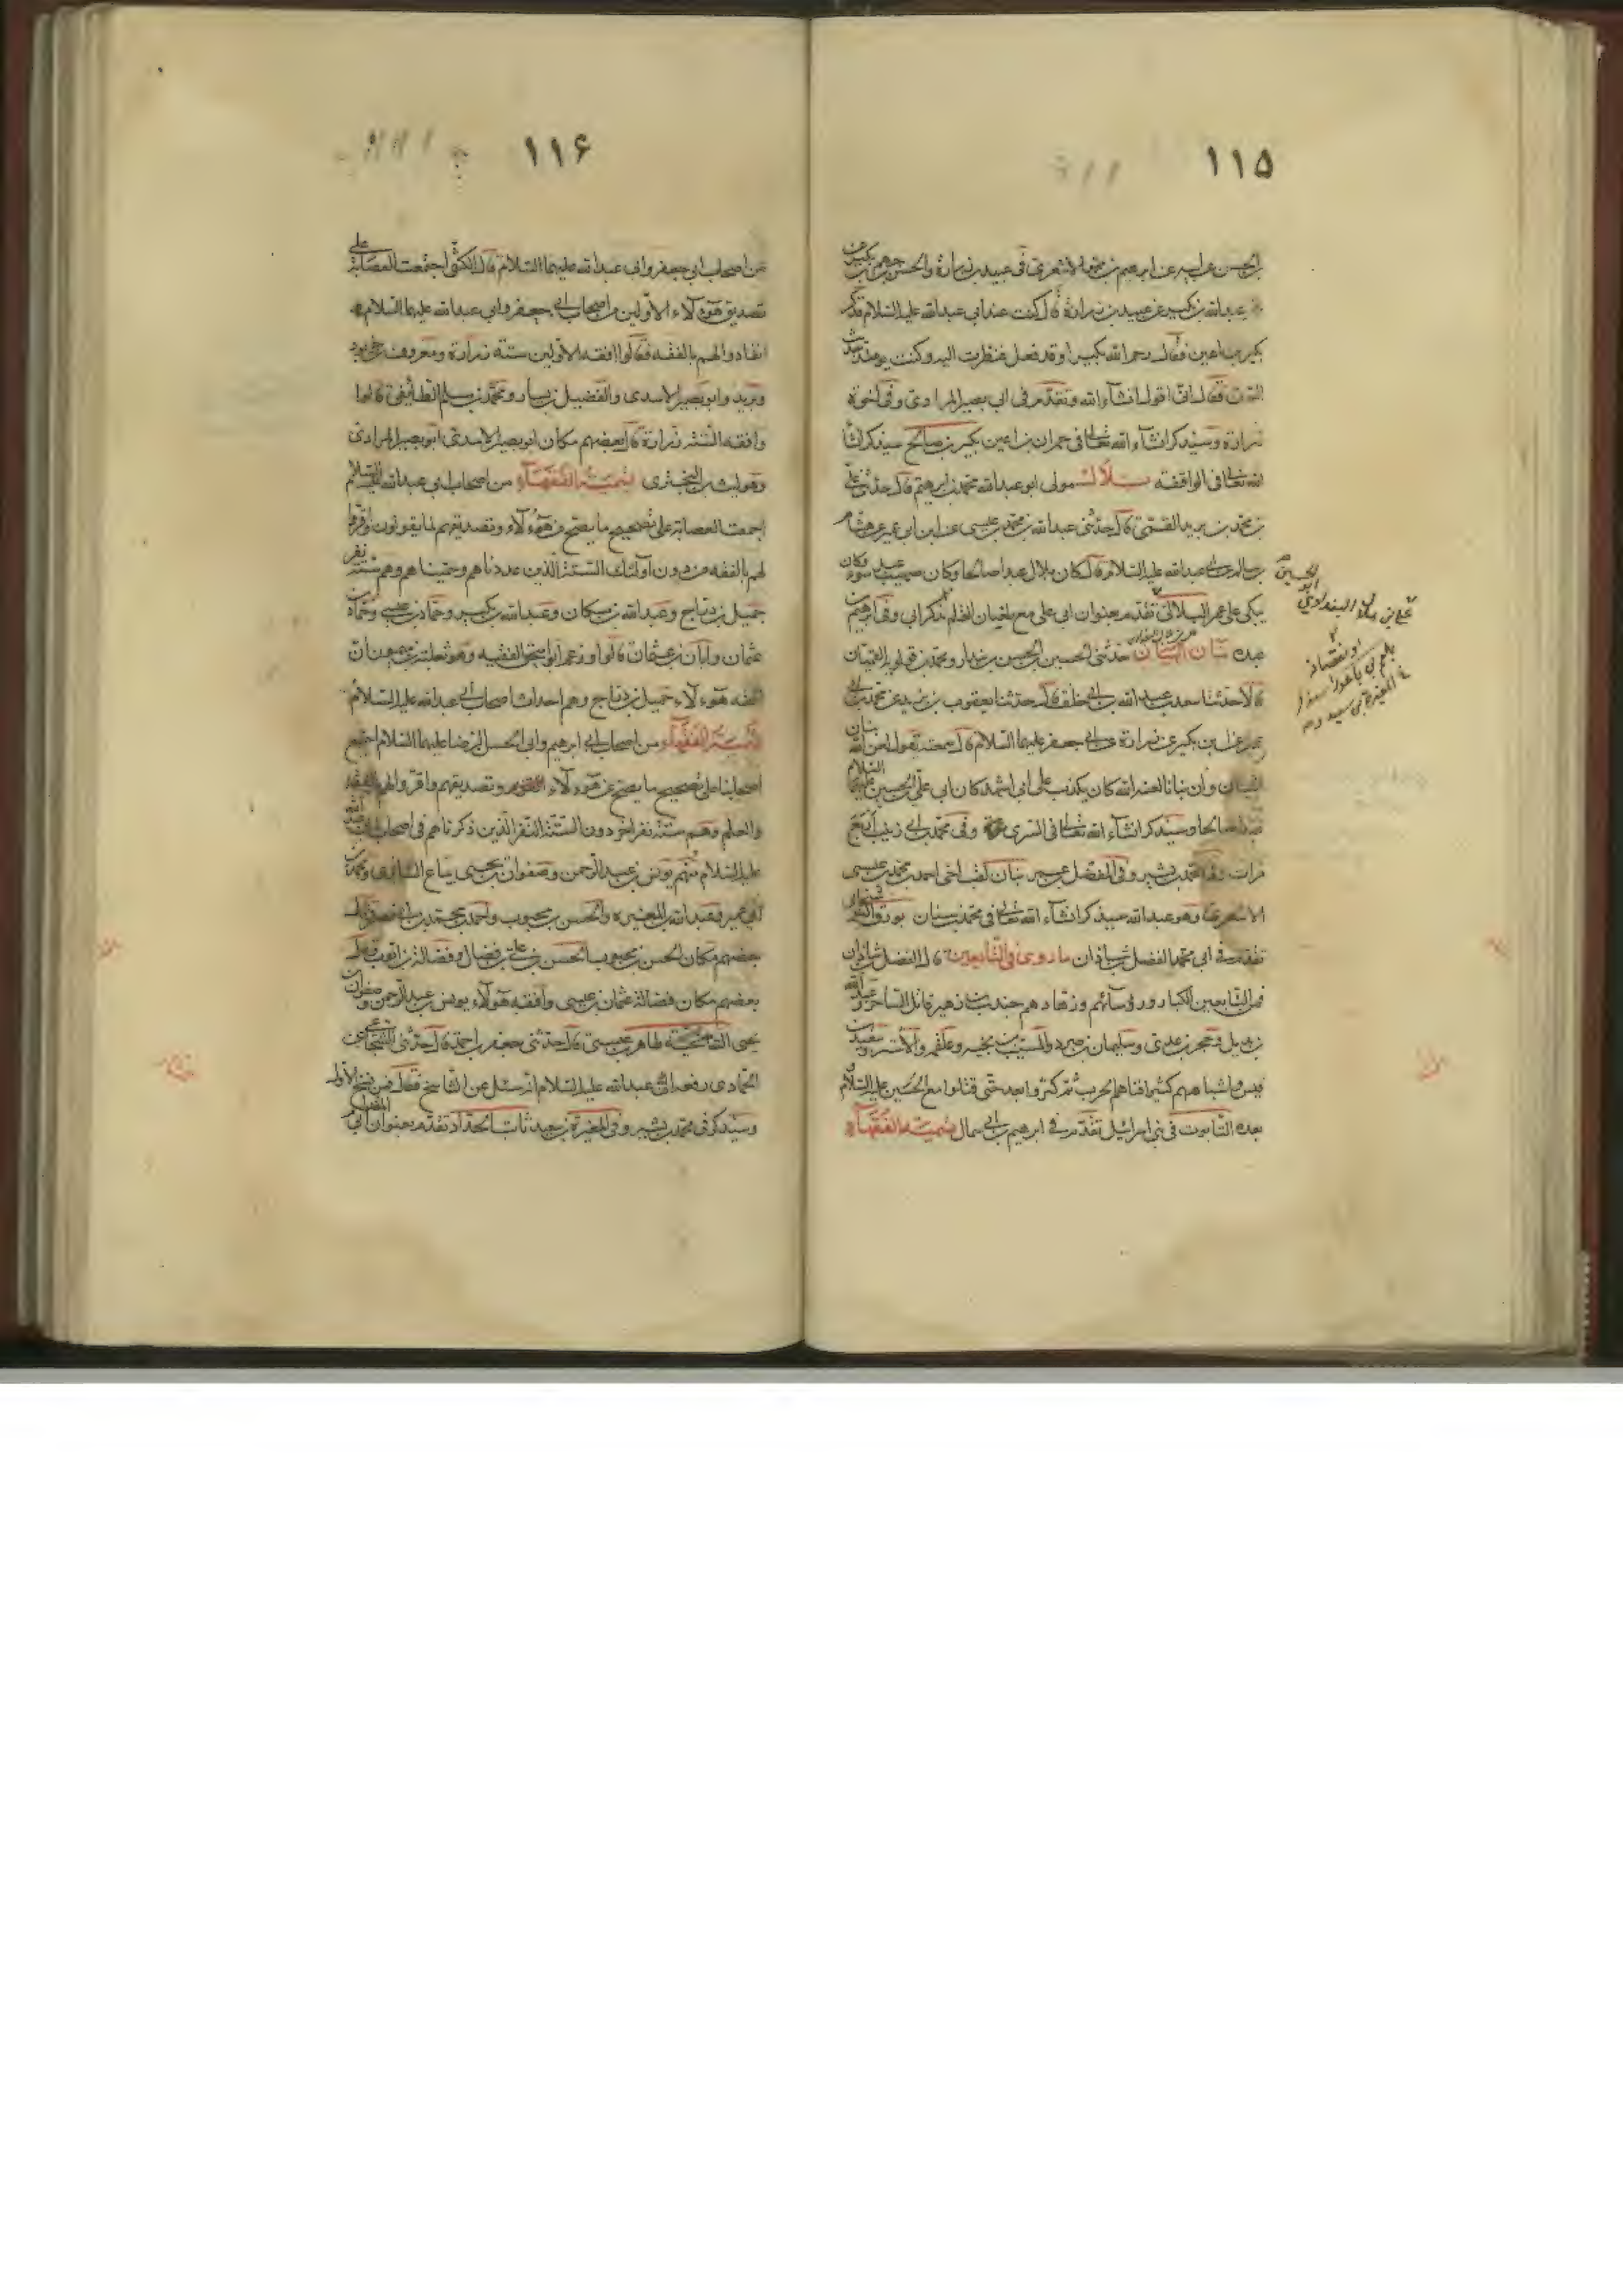 ١١۵
عبدالله بن بكير عن عبيد بن زرارة قال كنت عند ابي عبدالله عليه السلام
بكير بن اعين فقال رحم الله بكيرا وقد فعل فنظرت اليه وكنت يومئذ حديث
السن فقال اني اقول انشاء الله وتقدم في ابي بصير المرادي وفي اخوة
زرارة وسيذكر انشاء الله تعالى في حمران بن اعين بكير بن صالح سيذكر انشا
الله تعالى في الواقفة بلال مولى ابو عبدالله محمد بن ابرهيم قال حدثني علي
بن محمد بن يزيد القمي قال حدثني عبدالله بن محمد بن عيسى عن ابن ابي عمير عن هشام
بن سالم عن ابي عبدالله عليه السلام قال كان بلال عبدا صالحا وكان صهيب عبد سوء وكان
يبكي على عمر
بنان البيان حدثني الحسين بن الحسن بن بندار ومحمد بن قولويه القميان
قالا حدثنا سعد بن عبدالله بن ابي خلف قال حدثنا يعقوب بن يزيد عن محمد بن ابي
عمير عن ابن بكير عن زرارة عن ابي جعفر عليهما السلام قال سمعته يقول لعن الله بنان
البيان وان بنانا لعنه الله كان يكذب على ابي اشهد كان ابي علي بن الحسين عليهما السلام
عبدا صالحا وسيذكر انشاء الله تعالى في السري وفي محمد بن ابي زينب
فرات وفي محمد بن بشير وفي المفضل بن عمر بنان لقب اخي احمد بن محمد بن عيسى
الاشعري وهو عبدالله سيذكر انشاء الله تعالى في محمد بن سنان
تقدم في ابي محمد الفضل بن شاذان ما روي في التابعين قال الفضل بن شاذان
فمن التابعين الكبار ورؤسائهم وزهادهم جندب بن زهير قاتل الساحر وعبدالله
بن بديل وحجر بن عدي وسليمان بن صرد والمسيب بن نجبة وعلقمة والاشتر وسعيد بن
قيس واشباههم كثير افناهم الحرب ثم كثروا بعد حتى قتلوا مع الحسين عليه السلام و
بعده التابوت في بني اسرائيل تقدم في ابرهيم بن ابي سمال تسمية الفقهاء
١١۶
من اصحاب ابي جعفر وابي عبدالله عليهما السلام قال الكشي اجتمعت العصابة على
تصديق هؤلاء الاولين من اصحاب ابي جعفر وابي عبدالله عليهما السلام و
انقادوا لهم بالفقه فقالوا افقه الاولين ستة زرارة ومعروف بن خربوذ
وبريد وابو بصير الاسدي والفضيل بن يسار ومحمد بن مسلم الطائفي قالوا
وافقه الستة زرارة قال بعضهم مكان ابو بصير الاسدي ابو بصير المرادي
وهو ليث بن البختري تسمية الفقهاء من اصحاب ابي عبدالله عليه السلام
اجمعت العصابة على تصحيح ما يصح من هؤلاء وتصديقهم لما يقولون واقروا
لهم بالفقه من دون اولئك الستة الذين عددناهم وسميناهم وهم ستة نفر
جميل بن دراج وعبدالله بن مسكان وعبدالله بن بكير وحماد بن عيسى وحماد بن
عثمان وابان بن عثمان قالوا وزعم ابو اسحق الفقيه وهو ثعلبة بن ميمون ان
افقه هؤلاء جميل بن دراج وهم احداث اصحاب ابي عبدالله عليه السلام
تسمية الفقهاء من اصحاب ابي ابرهيم وابي الحسن الرضا عليهما السلام اجمع
اصحابنا على تصحيح ما يصح عن هؤلاء وتصديقهم واقروا لهم بالفقه
والعلم وهم ستة نفر اخر دون الستة النفر الذين ذكرناهم في اصحاب ابي عبدالله
عليه السلام منهم يونس بن عبدالرحمن وصفوان بن يحيى بياع السابري ومحمد بن
ابي عمير وعبدالله بن المغيرة والحسن بن محبوب واحمد بن محمد بن ابي نصر وقال
بعضهم مكان الحسن بن محبوب الحسن بن علي بن فضال وفضالة بن ايوب وقال
بعضهم مكان فضالة عثمان بن عيسى وافقه هؤلاء يونس بن عبدالرحمن وصفوان بن
يحيى طاهر بن عيسى قال حدثني جعفر بن احمد قال حدثني الشجاعي عن
الحمادي رفعه الى ابي عبدالله عليه السلام انه سئل عن التناسخ فقال فمن نسخ الاول
وسيذكر في محمد بن بشير وفي المغيرة بن سعيد ثابت الحداد تقدم بعنوان ابي المقدام